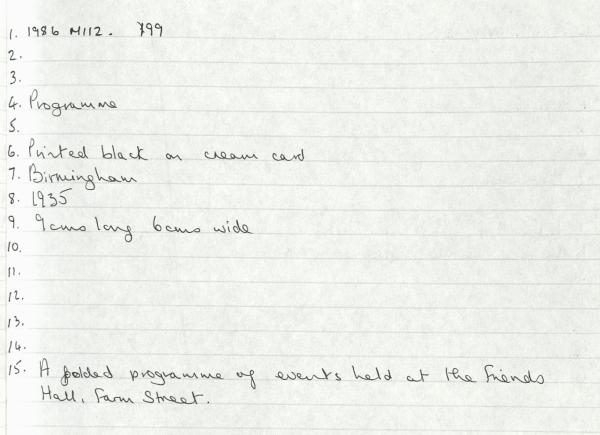 1. 1986 M112. 799
2.
3.
4. Programme
5.
6. Printed black on cream card
7. Birmingham
8. 1935
9. 9cms long 6cms wide
10.
11.
12.
13.
14.
15. A folded programme of events held at the Friends
Hall, Farm Street.